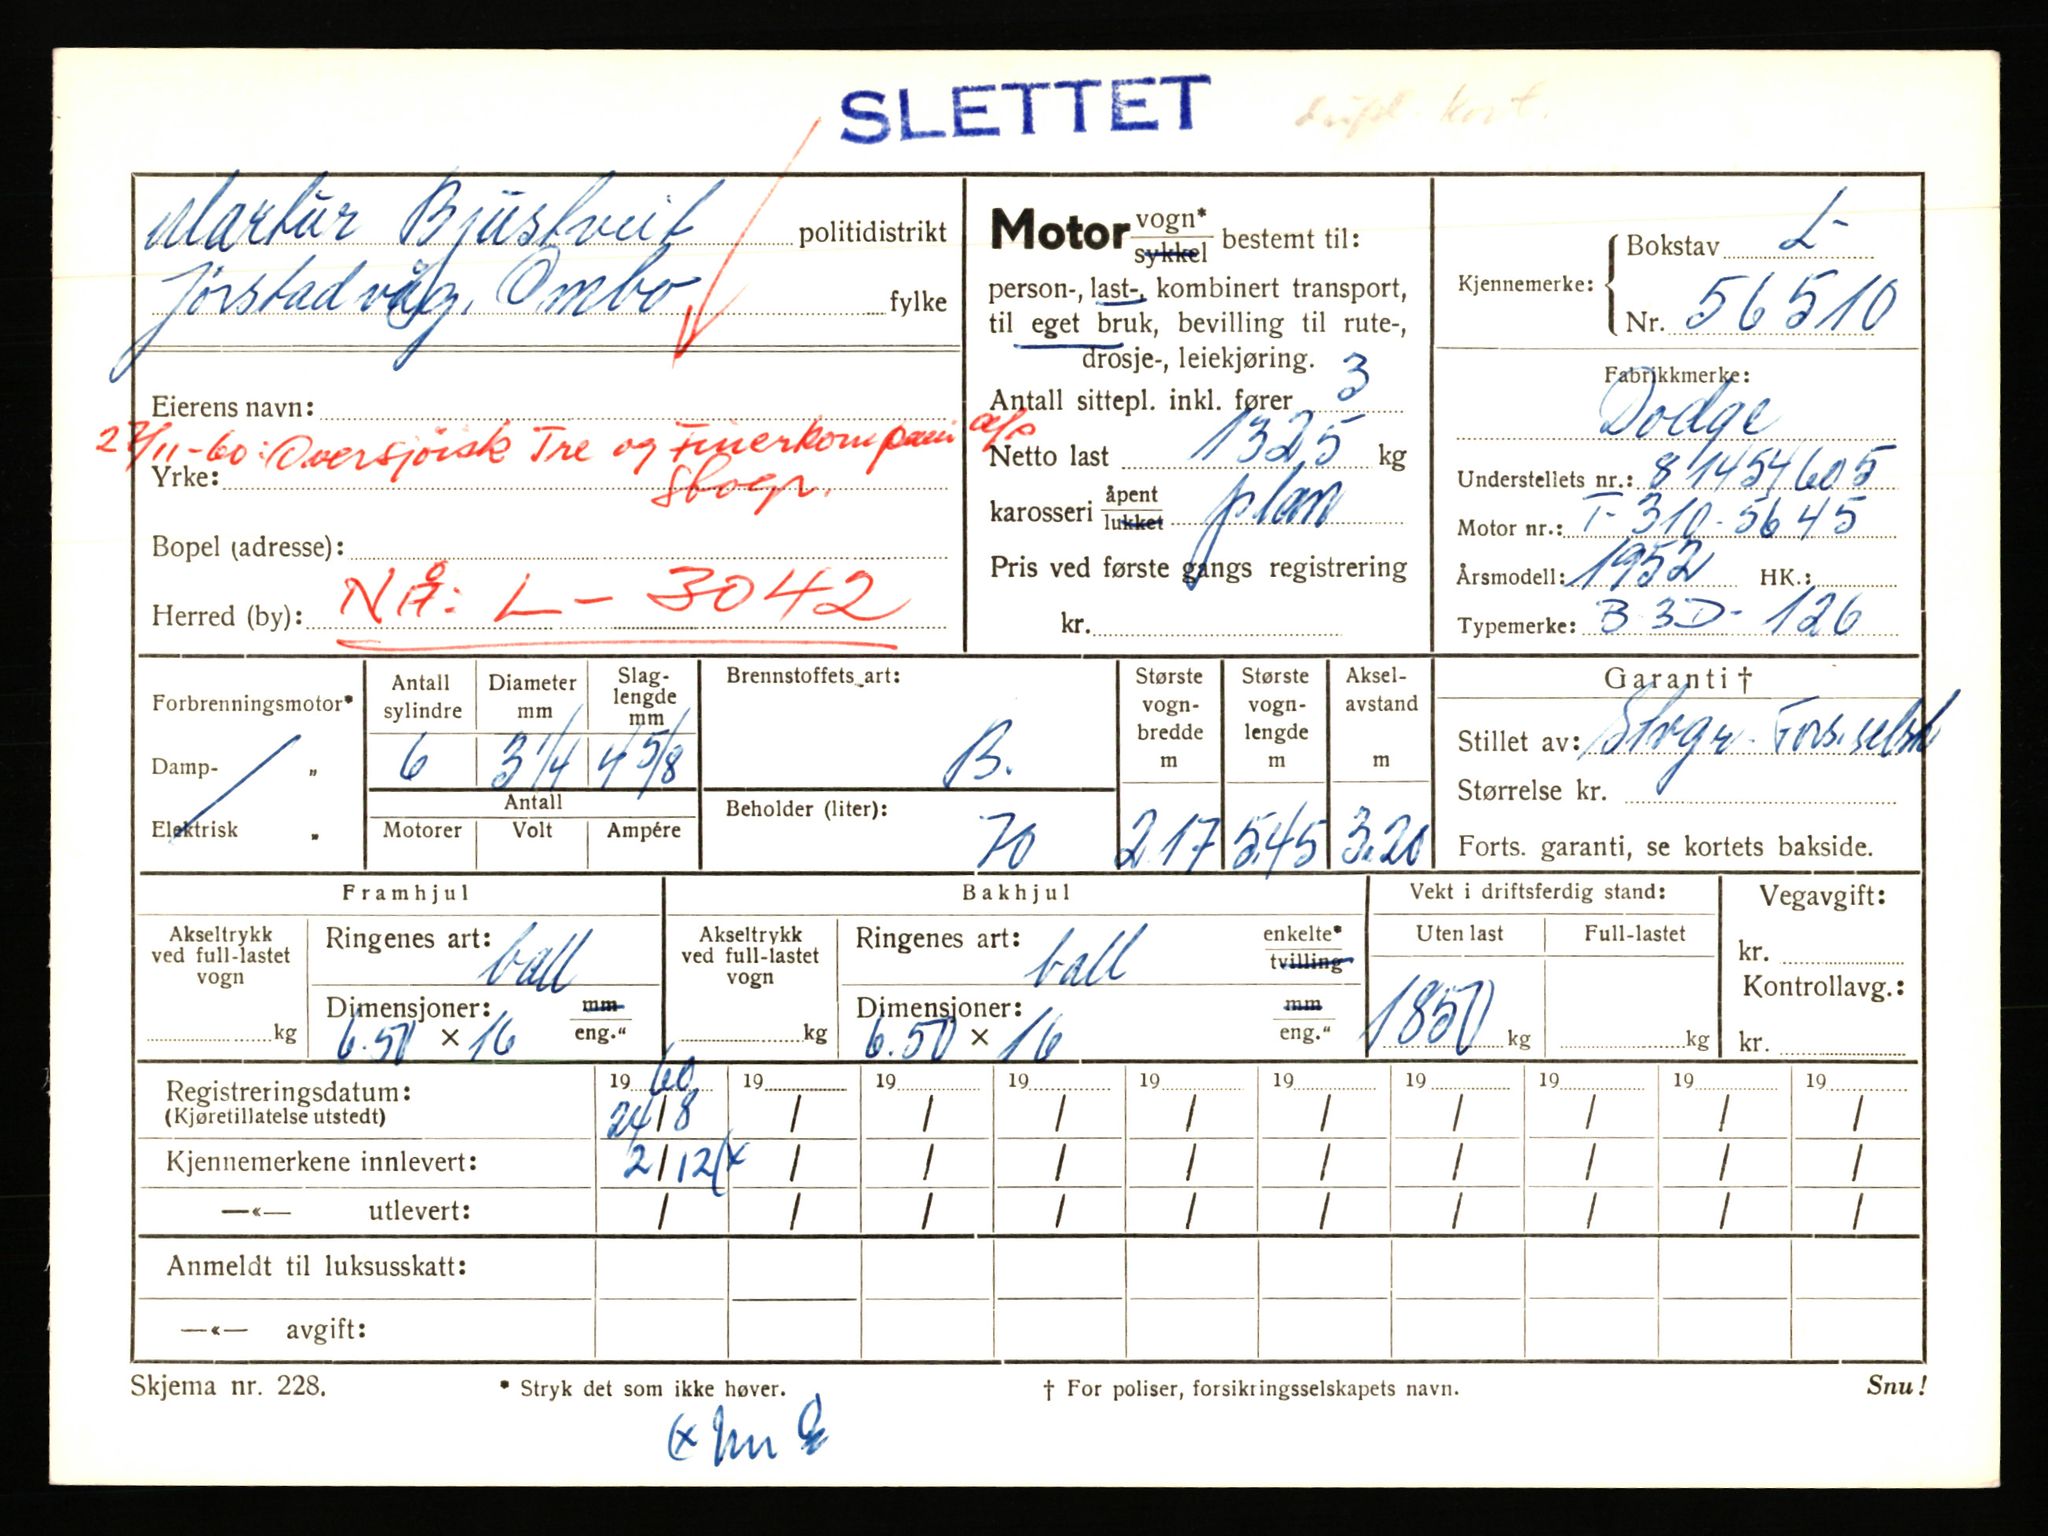 SLETTET
dupl. kort.
Martin Bjustveit politidistrikt
Jørstadvåg, Ombo fylke
Eierens navn:
27/11-60: Oversjøisk Tre og Finerkompani a/s
Yrke: Stvgr.
Bopel (adresse):
Herred (by): NÅ: L - 3042
Motor vogn* sykkel bestemt til:
person-, last-, kombinert transport,
til eget bruk, bevilling til rute-,
drosje-, leiekjøring.
Antall sittepl. inkl. fører 3
Netto last 1325 kg
karosseri åpent lukket plan
Pris ved første gangs registrering
kr.
Kjennemerke: Bokstav L-
Nr. 56510
Fabrikkmerke:
Dodge
Understellets nr.: 81454605
Motor nr.: T-310-5645
Årsmodell: 1952 HK.:
Typemerke: B-3D-126
Forbrenningsmotor*
Damp- „
Elektrisk „
Antall sylindre 6
Diameter mm 3 1/4
Slag-lengde mm 4 5/8
Antall
Motorer Volt Ampére
Brennstoffets art: B.
Beholder (liter): 70
Største vogn-bredde m 2.17
Største vogn-lengde m 5.45
Aksel-avstand m 3.20
Garanti †
Stillet av: Stvgr. Fors.selsk.
Størrelse kr.
Forts. garanti, se kortets bakside.
Framhjul
Akseltrykk ved full-lastet vogn kg
Ringenes art: ball
Dimensjoner: mm
6.50 × 16 eng."
Bakhjul
Akseltrykk ved full-lastet vogn kg
Ringenes art: ball enkelte* tvilling
Dimensjoner: mm
6.50 × 16 eng."
Vekt i driftsferdig stand:
Uten last Full-lastet
1850 kg kg
Vegavgift:
kr.
Kontrollavg.:
kr.
Registreringsdatum: 1960 19 19 19 19 19 19 19 19 19
(Kjøretillatelse utstedt) 24/8 / / / / / / / / /
Kjennemerkene innlevert: 2/12 (x / / / / / / / / /
—«— utlevert: / / / / / / / / / /
Anmeldt til luksusskatt:
—«— avgift:
Skjema nr. 228. * Stryk det som ikke høver. † For poliser, forsikringsselskapets navn. Snu!
(x